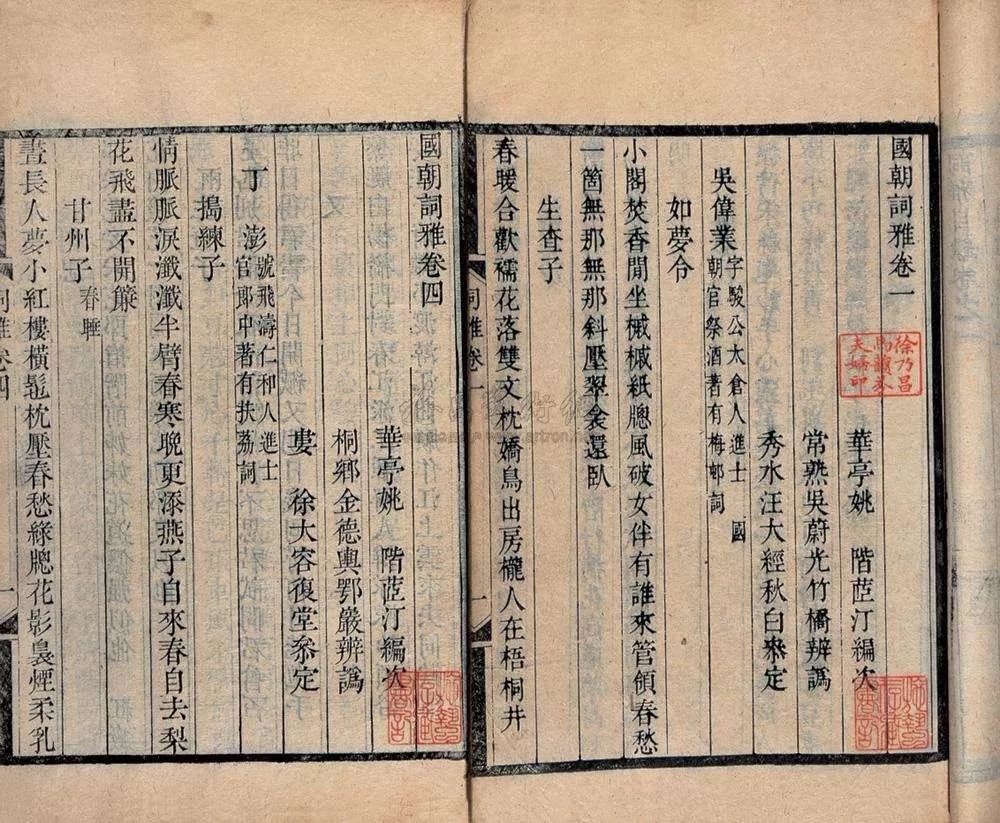 國朝詞雅卷一
華亭姚 階茝汀編次
常熟吳蔚光竹橋辨譌
秀水汪大經秋白叅定
吳偉業 字駿公太倉人進士 國
朝官祭酒著有梅邨詞
如夢令
小閣焚香閒坐摵摵紙牕風破女伴有誰來管領春愁
一箇無那無那斜壓翠衾還臥
生查子
春暖合歡襦花落雙文枕嬌鳥出房櫳人在梧桐井
徐乃昌
馬韻芬
夫婦印
詞雅卷一
一
國朝詞雅卷四
華亭姚 階茝汀編次
桐鄉金德輿鄂巖辨譌
婁 徐大容復堂叅定
丁澎 號飛濤仁和人進士
官郎中著有扶荔詞
搗練子
情脈脈淚瀸瀸半臂春寒晚更添燕子自來春自去梨
花飛盡不開簾
甘州子 春睡
晝長人夢小紅樓橫髢枕壓春愁綠牕花影裊煙柔乳
詞雅卷四
一